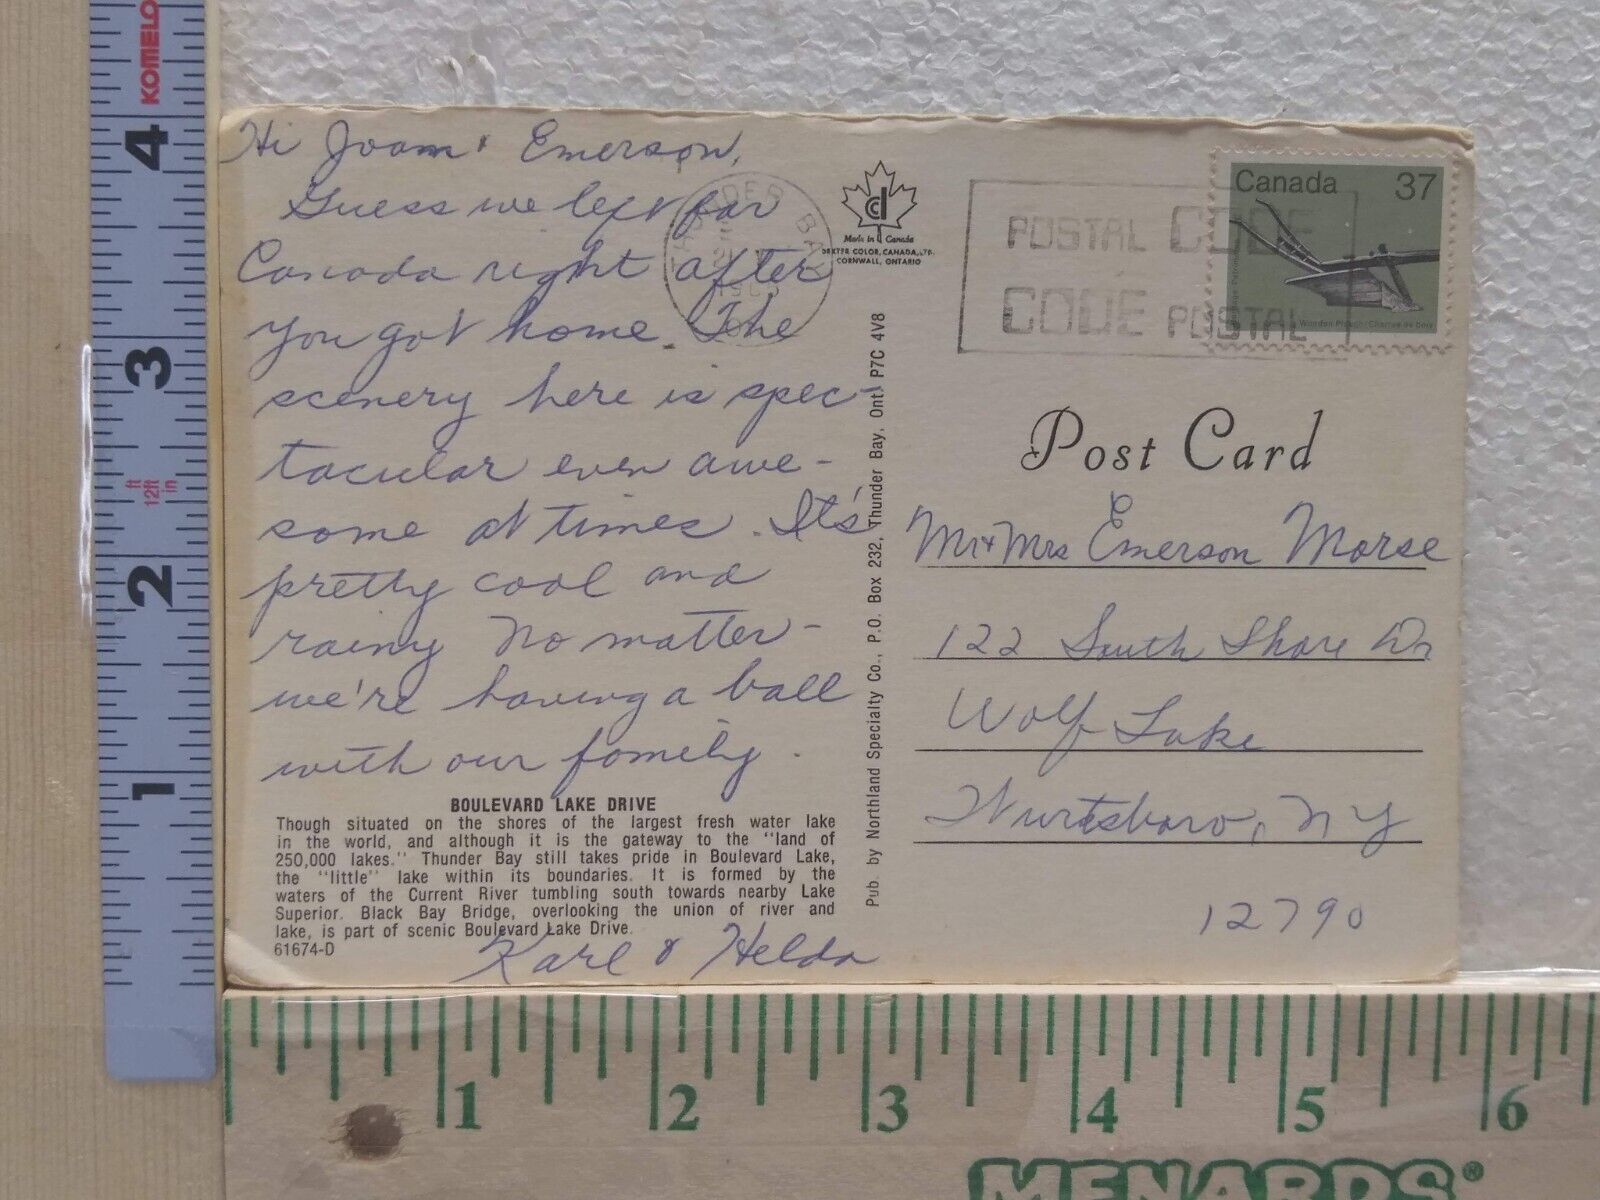 Hi Joam & Emerson,
Guess we left for
Canada right after
you got home. The
scenery here is spec-
tacular even awe-
some at times. It's
pretty cool and
rainy No matter -
we're having a ball
with our family.
BOULEVARD LAKE DRIVE
Though situated on the shores of the largest fresh water lake
in the world, and although it is the gateway to the "land of
250,000 lakes." Thunder Bay still takes pride in Boulevard Lake,
the "little" lake within its boundaries. It is formed by the
waters of the Current River tumbling south towards nearby Lake
Superior. Black Bay Bridge, overlooking the union of river and
lake, is part of scenic Boulevard Lake Drive.
61674-D
Karl & Helda
Pub. by Northland Specialty Co., P.O. Box 232, Thunder Bay, Ont. P7C 4V8
THUNDER BAY
Made in Canada
DEXTER COLOR, CANADA, LTD.
CORNWALL, ONTARIO
POSTAL CODE
CODE POSTAL
Canada 37
Wooden Plough / Charrue de bois
Post Card
Mr + Mrs Emerson Morse
122 South Shore Dr
Wolf Lake
Wurtsboro, NY
12790
KOMELO
4
3
ft
12ft
in
2
1
1 2 3 4 5 6
MENARDS®